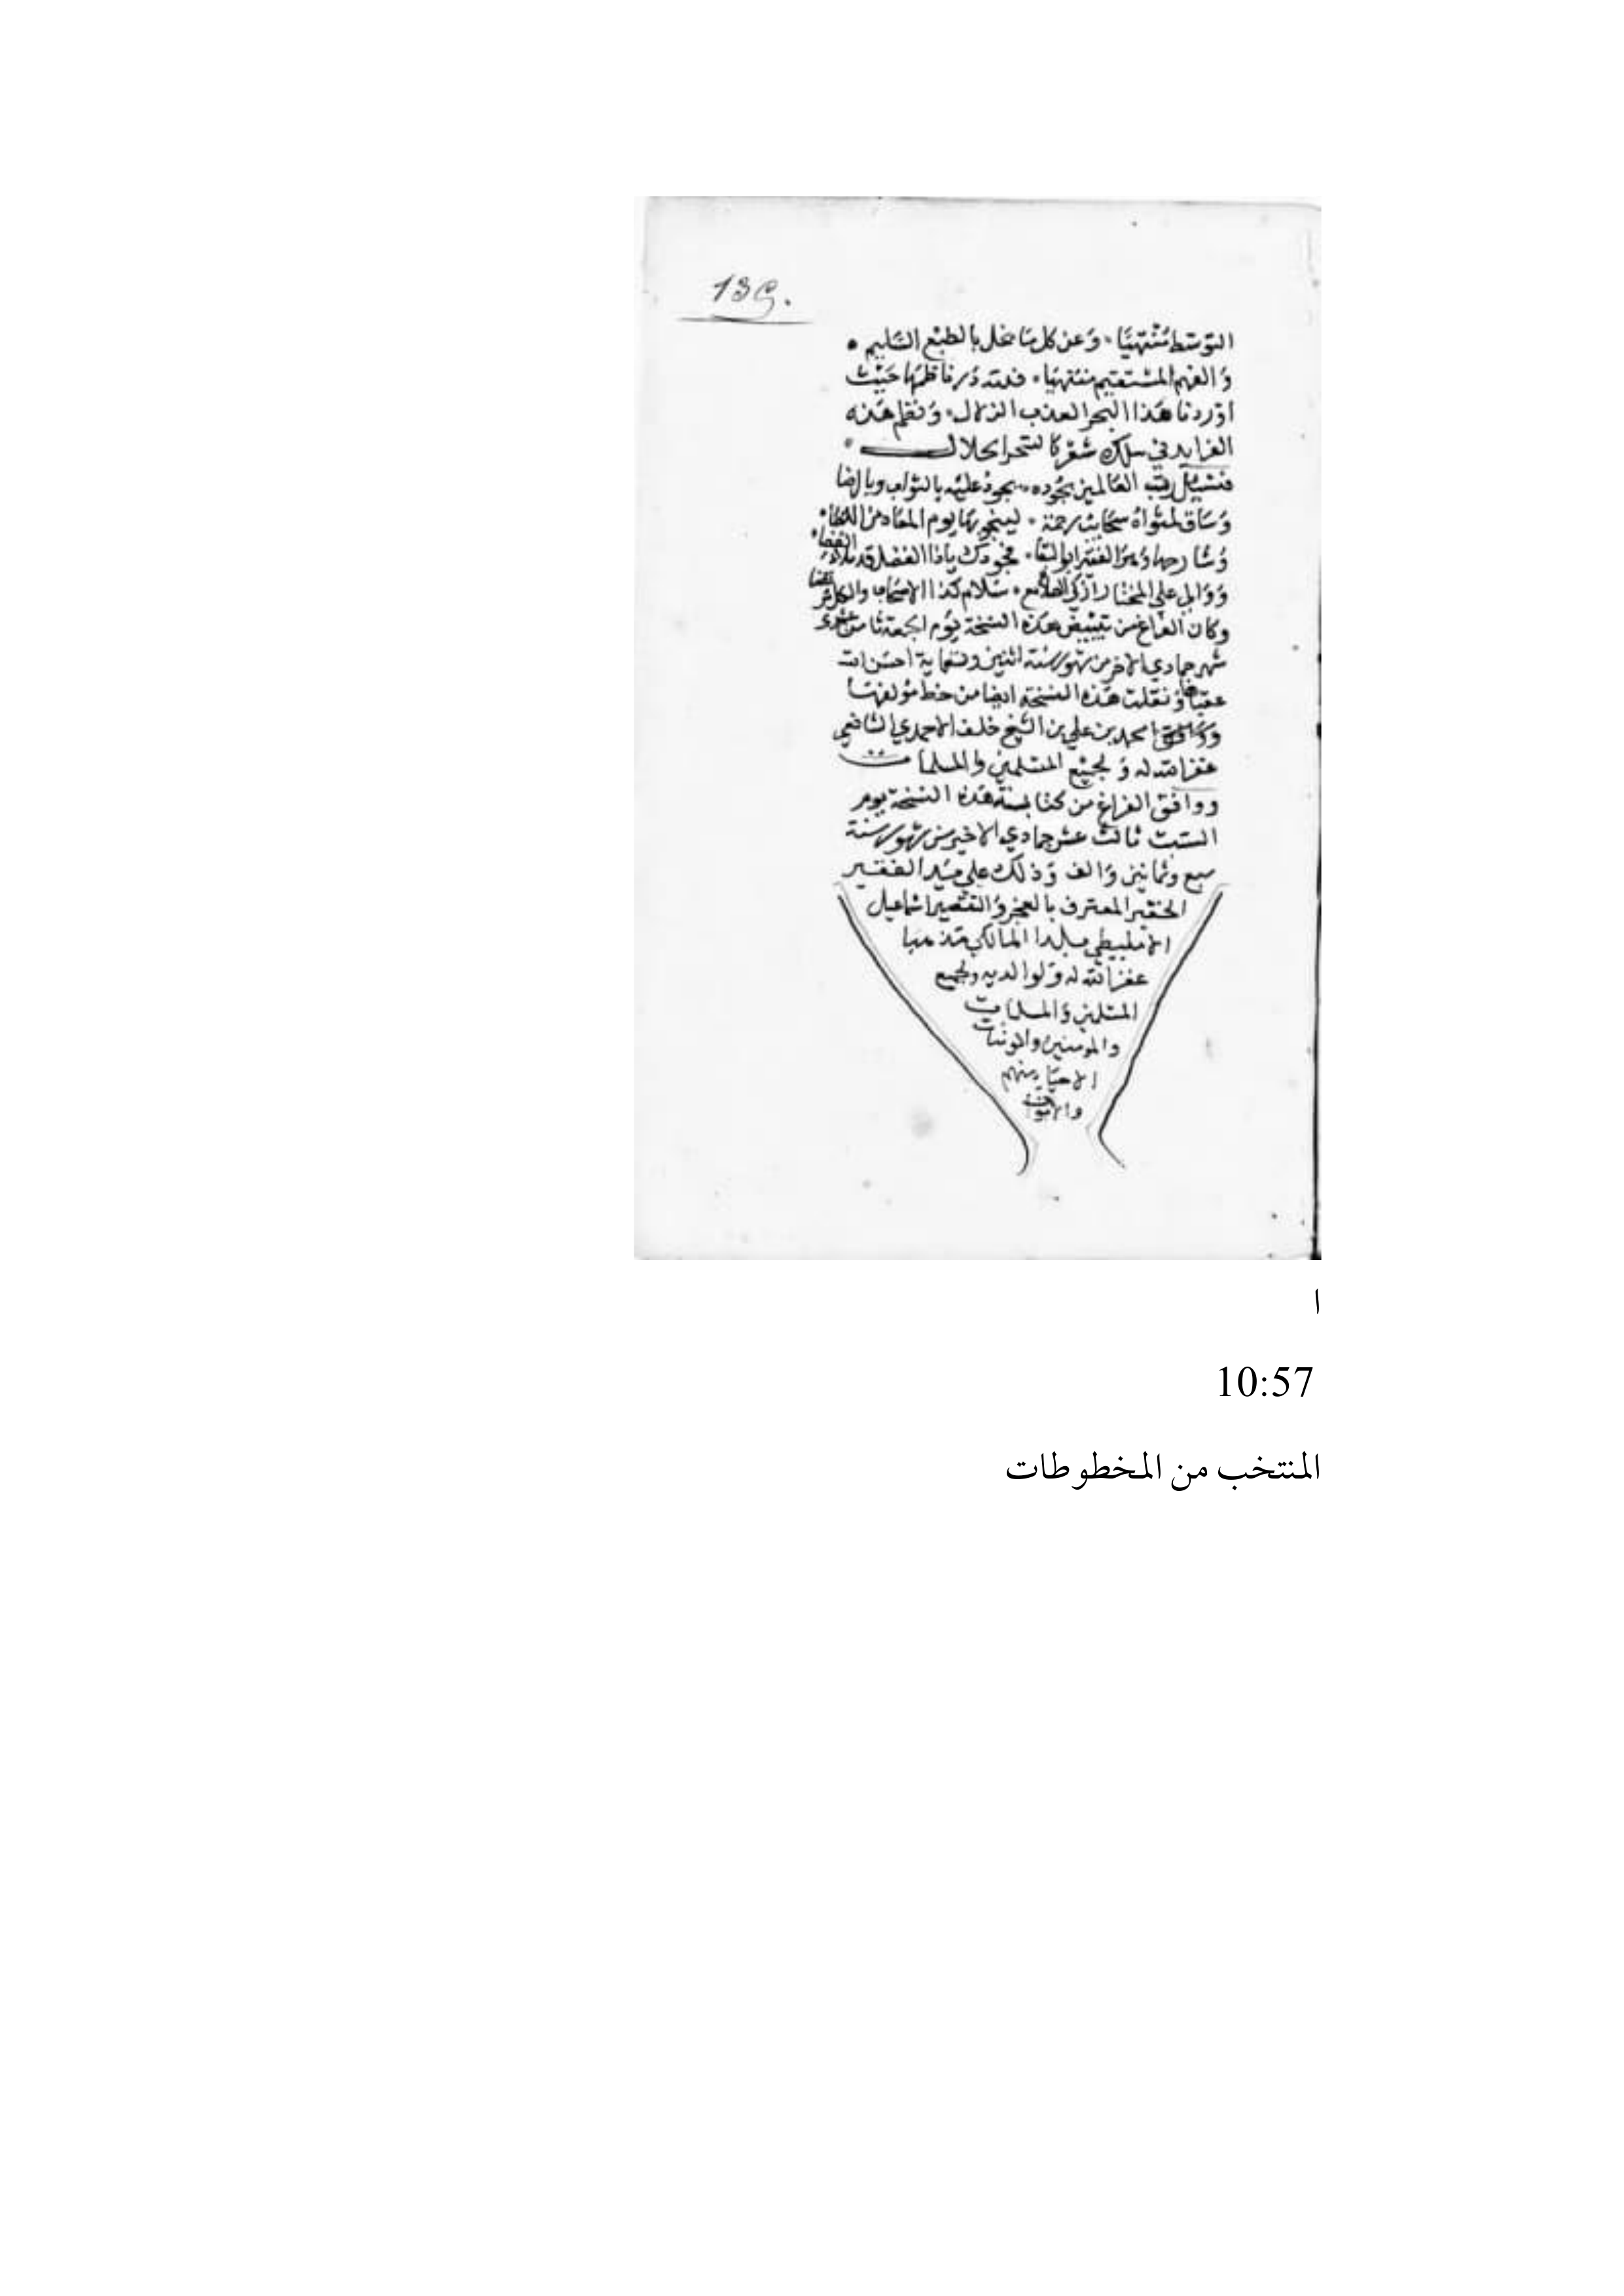 139.
التوسط منتهيا، وعن كل ما يخل بالطبع السليم
والفهم المستقيم منتهيا، فلله در ناظمها حيث
اوردنا هذا البحر العذب الزلال، ونظم هذه
الفرايد في سلك شعر كالسحر الحلال
فنسيل رب العالمين بجوده، يجود عليه بالثواب وبالرضا
وساق لمثواه سحايب رحمة، لينجو بها يوم المعاد من
وشارحها وهو الفقير ابو البقا، فجودك ياذا الفضل قد الفضا
ووالى على المختار ازكى، سلام كذا الاصحاب والكل
وكان الفراغ من تبييض هذه النسخة يوم الجمعة ثامن عشرى
شهر جمادي الاخر من شهور سنة اثنين وتسعماية احسن الله
عقباها ونقلت هذه النسخة ايضا من خط مولفها
محمد بن علي بن الشيخ خلف الاحمدي الشافعي
غفر الله له ولجميع المسلمين والمسلمات
ووافق الفراغ من كتابة هذه النسخة يوم
السبت ثالث عشر جمادي الاخير من شهور سنة
سبع وثمانين والف وذلك على يد الفقير
الحقير المعترف بالعجز والتقصير اسماعيل
بلدا المالكي مذهبا
غفر الله له ولوالديه ولجميع
المسلمين والمسلمات
والمومنين والمومنات
الاحيا منهم
والاموات
ا
10:57
المنتخب من المخطوطات